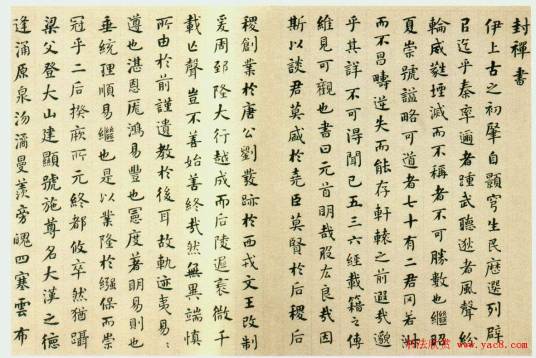 封禪書
伊上古之初肇自顥穹生民歷選列辟
以迄乎秦率邇者踵武聽逖者風聲紛
綸威蕤堙滅而不稱者不可勝數也繼昭
夏崇號謚略可道者七十有二君罔若淑
而不昌疇逆失而能存軒轅之前遐哉邈
乎其詳不可得聞已五三六經載籍之傳
維見可觀也書曰元首明哉股肱良哉因
斯以談君莫盛於堯臣莫賢於后稷后
稷創業於唐公劉發跡於西戎文王改制
爰周郅隆大行越成而后陵遲衰微千
載亡聲豈不善始善終哉然無異端慎
所由於前謹遺教於後耳故軌迹夷易
遵也湛恩厖鴻易豐也憲度著明易則也
垂統理順易繼也是以業隆於繦保而崇
冠乎二后揆厥所元終都攸卒然猶躡
梁父登大山建顯號施尊名大漢之德
逢涌原泉沕潏曼羡旁魄四塞雲布
书法欣赏 www.yac8.com